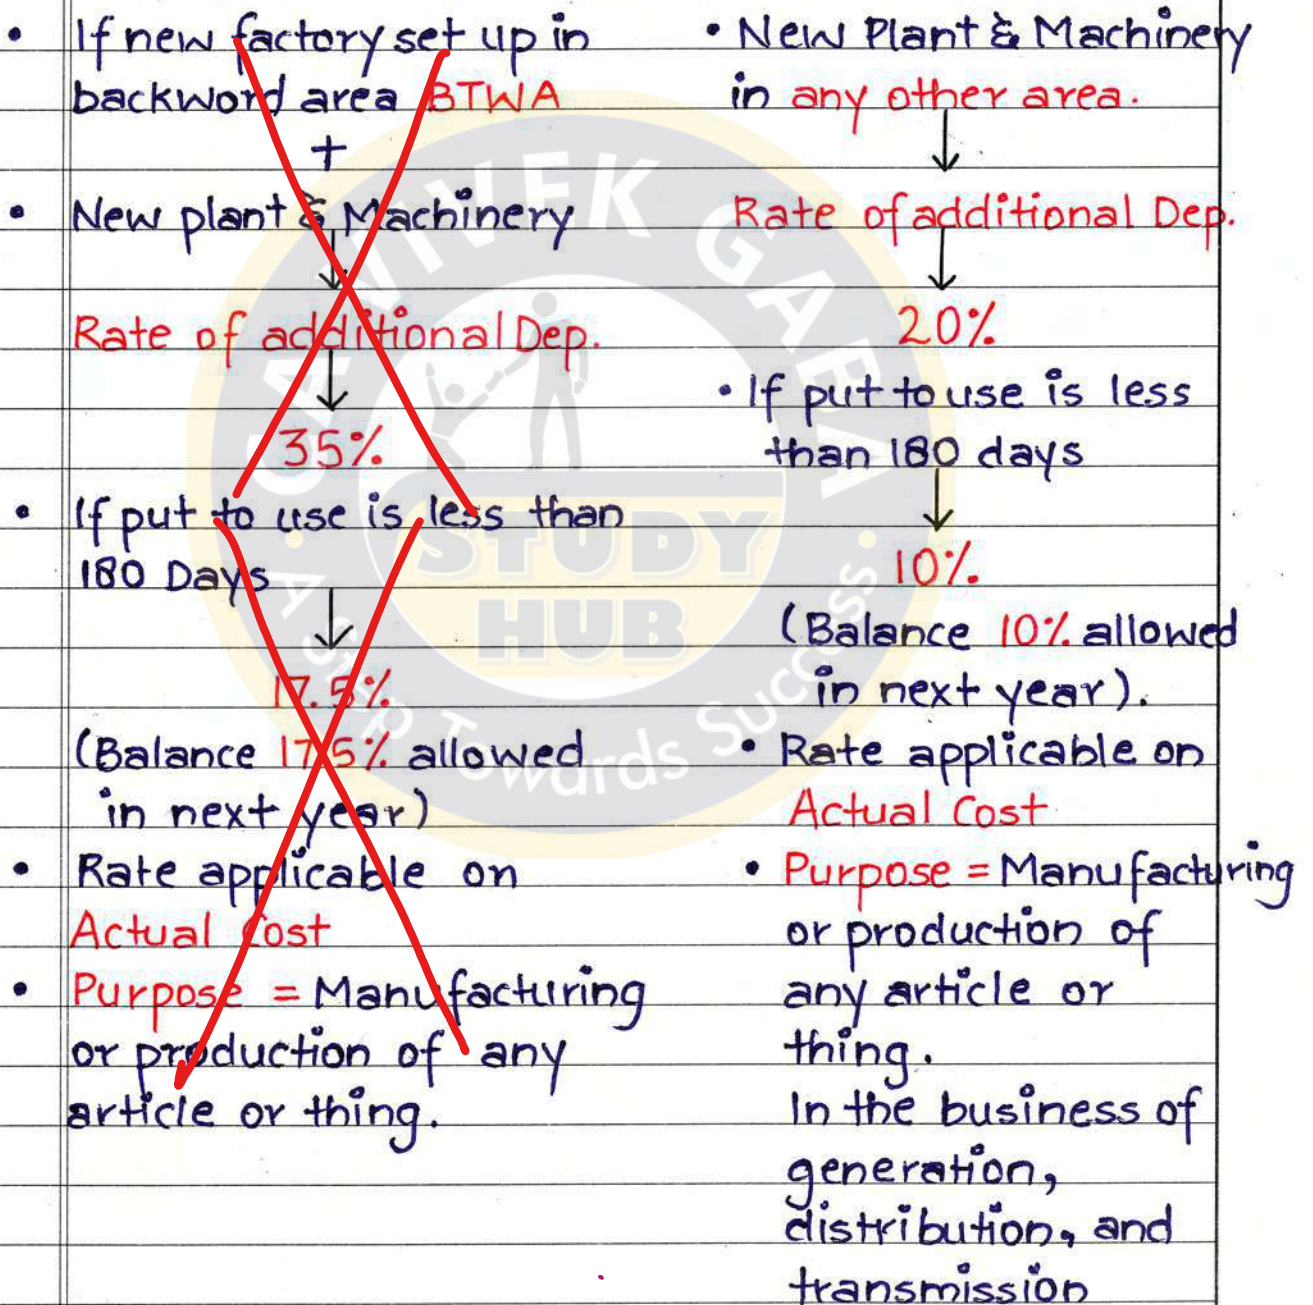 • If new factory set up in
backword area BTWA
+
• New plant & Machinery
↓
Rate of additional Dep.
↓
35%
• If put to use is less than
180 Days
↓
17.5%
(Balance 17.5% allowed
in next year)
• Rate applicable on
Actual Cost
• Purpose = Manufacturing
or production of any
article or thing.
• New Plant & Machinery
in any other area.
↓
Rate of additional Dep.
↓
20%
• If put to use is less
than 180 days
↓
10%
(Balance 10% allowed
in next year).
• Rate applicable on
Actual Cost
• Purpose = Manufacturing
or production of
any article or
thing.
In the business of
generation,
distribution, and
transmission
VIVEK GABA
STUDY
HUB
A Step Towards Success